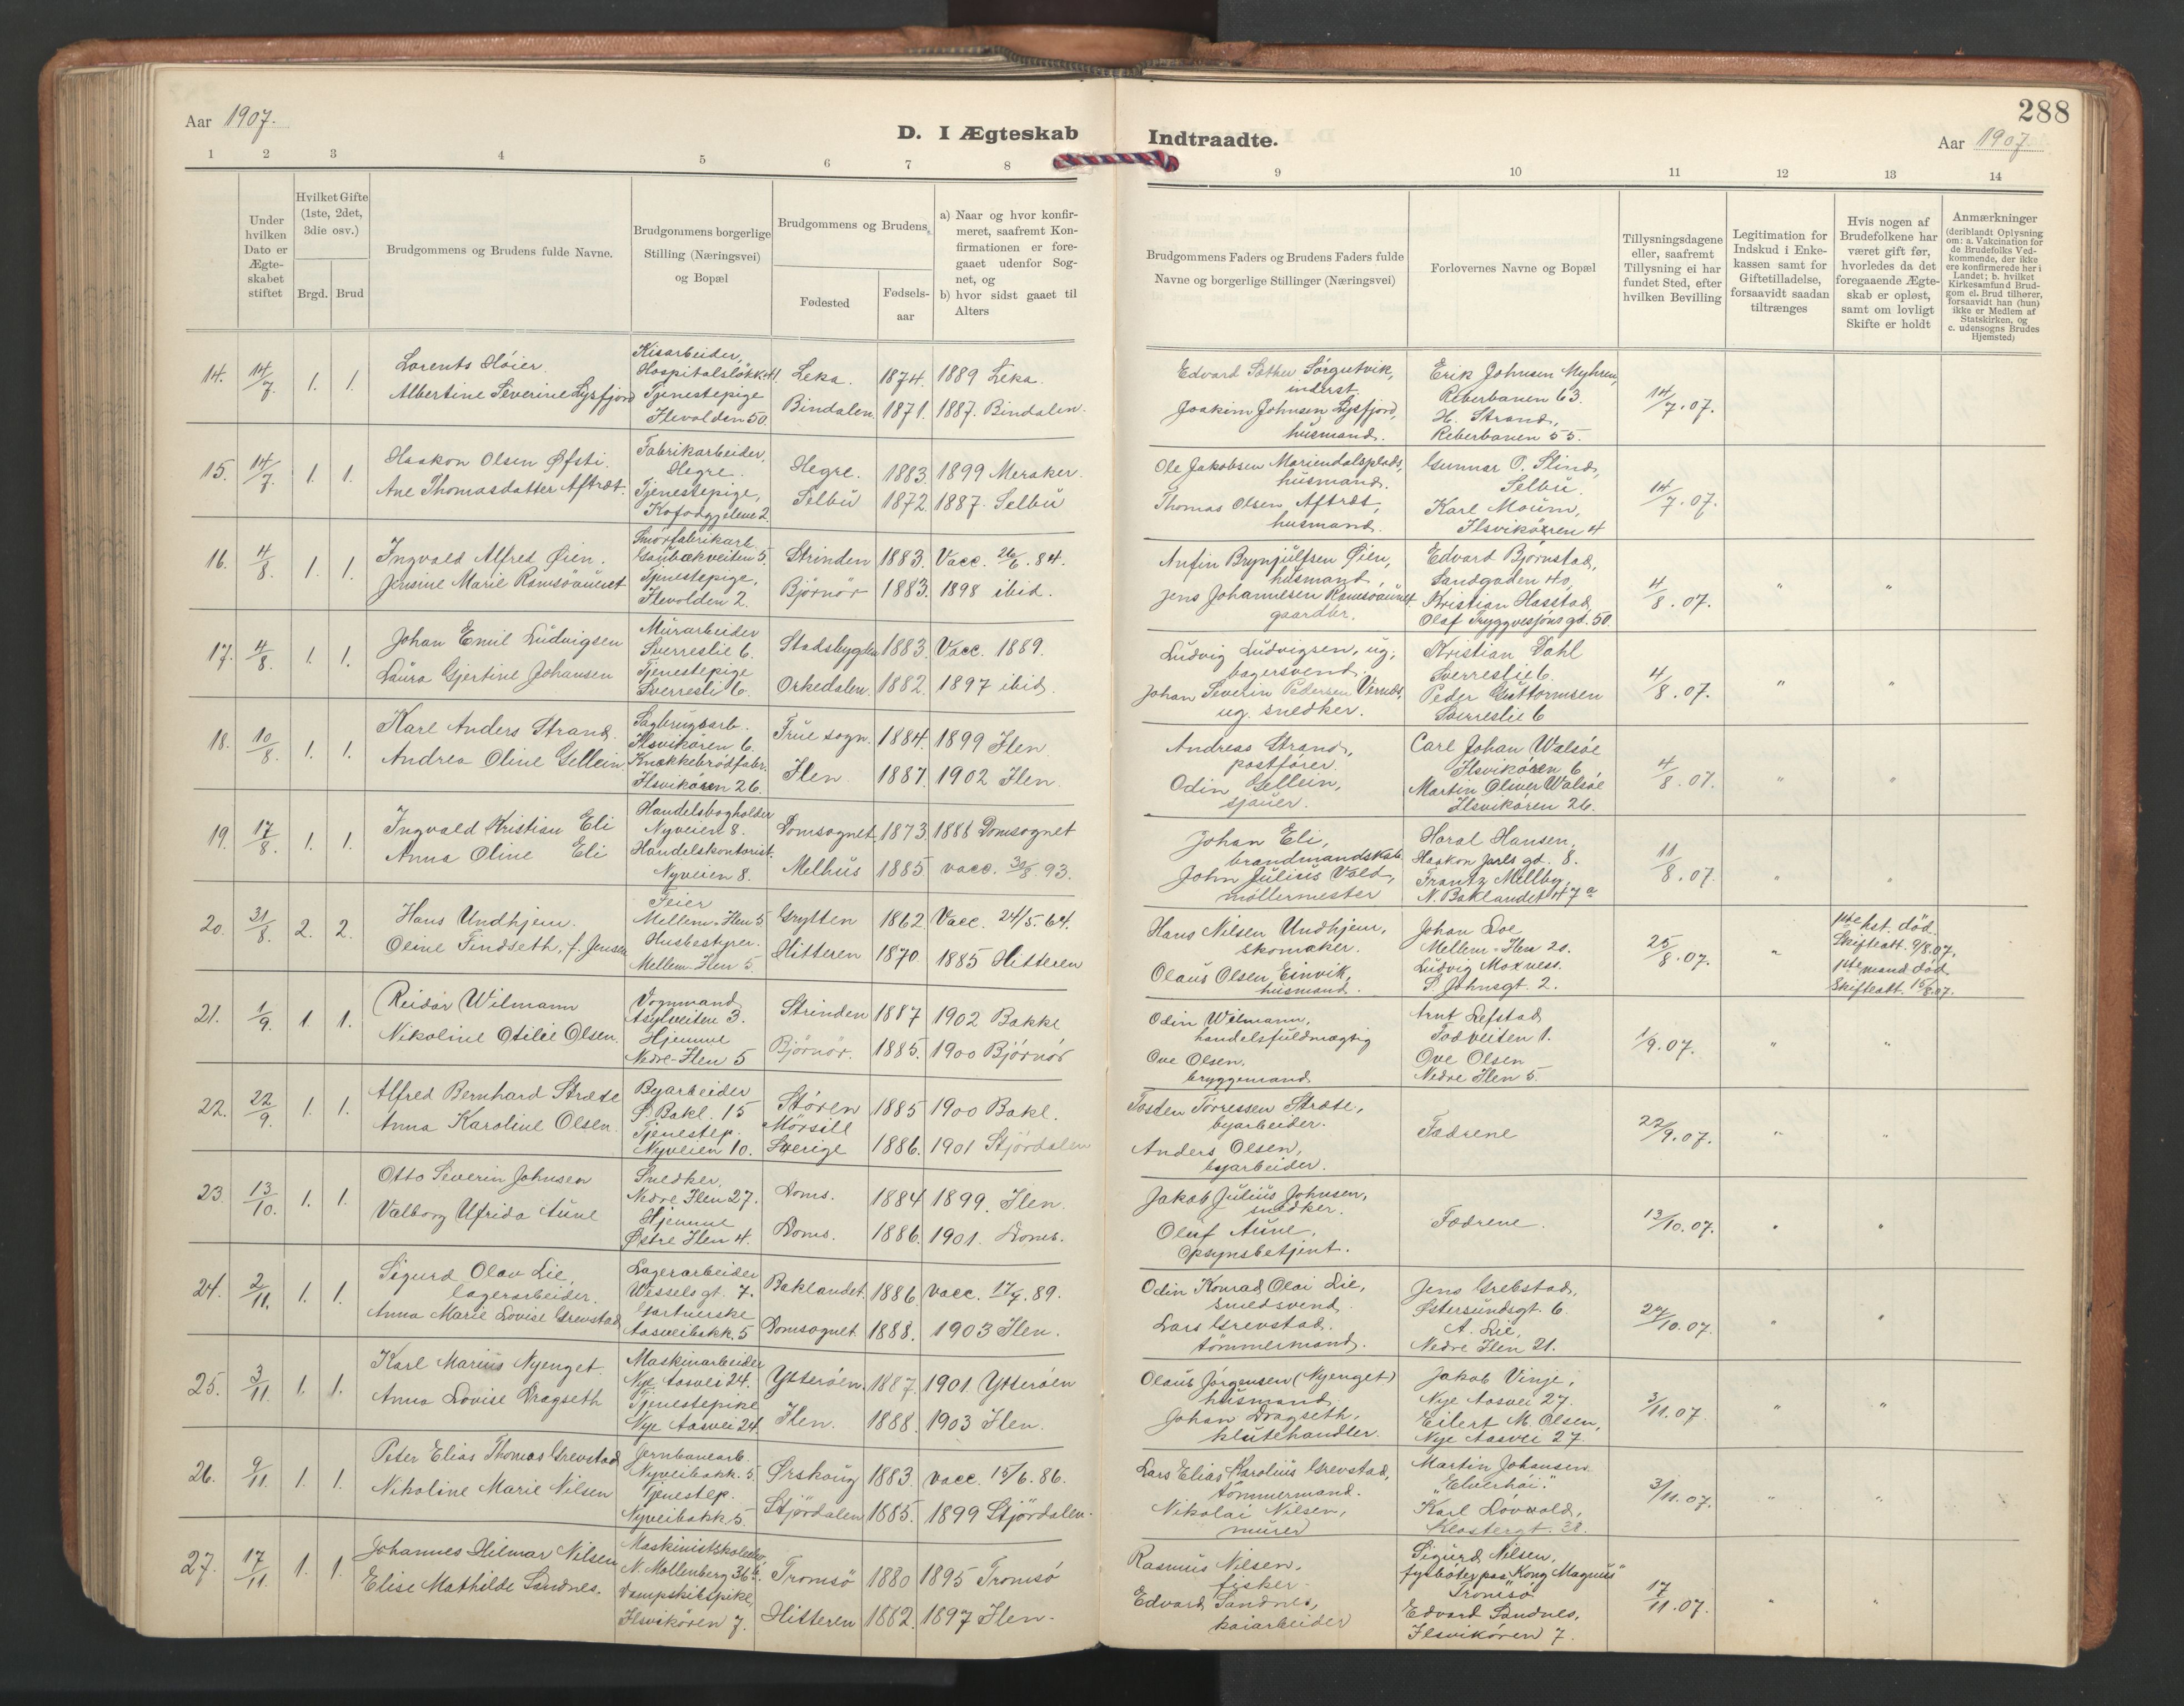 Aar 1907.
D. I Ægteskab
Indtraadte.
288
Aar 1907
1 2 3 4 5 6 7 8 9 10 11 12 13 14
Under hvilken Dato er Ægteskabet stiftet
Hvilket Gifte (1ste, 2det, 3die osv.)
Brgd. Brud
Brudgommens og Brudens fulde Navne.
Brudgommens borgerlige Stilling (Næringsvei) og Bopæl
Brudgommens og Brudens
Fødested
Fødsels-aar
a) Naar og hvor konfir-
meret, saafremt Kon-
firmationen er fore-
gaaet udenfor Sog-
net, og
b) hvor sidst gaaet til
Alters
Brudgommens Faders og Brudens Faders fulde
Navne og borgerlige Stillinger (Næringsvei)
Forlovernes Navne og Bopæl
Tillysningsdagene
eller, saafremt
Tillysning ei har
fundet Sted, efter
hvilken Bevilling
Legitimation for
Indskud i Enke-
kassen samt for
Giftetilladelse,
forsaavidt saadan
tiltrænges
Hvis nogen af
Brudefolkene har
været gift før,
hvorledes da det
foregaaende Ægte-
skab er opløst,
samt om lovligt
Skifte er holdt
Anmærkninger
(deriblandt Oplysning
om: a. Vakcination for
de Brudefolks Ved-
kommende, der ikke
ere konfirmerede her i
Landet; b. hvilket
Kirkesamfund Brud-
gom el. Brud tilhører,
forsaavidt han (hun)
ikke er Medlem af
Statskirken, og
c. udensogns Brudes
Hjemsted)
14. 14/7 1. 1.
Lorents Høier.
Albertine Severine Lysfjord
Kisarbeider,
Hospitalsløkk. 41.
Tjenestepige
Ilevolden 50.
Leka. 1874. 1889 Leka.
Bindalen 1871. 1887. Bindalen.
Edvard Sæther Sørgutvik,
inderst
Joakim Johnsen Lysfjord,
husmand.
Erik Johnsen Myhren,
Reberbanen 63.
H. Strand,
Reberbanen 55.
14/7.07.
15. 14/7 1. 1.
Haakon Olsen Øfsti.
Ane Thomasdatter Aftræt.
Fabrikarbeider,
Hegre.
Tjenestepige,
Kofodgjelene 2.
Hegre. 1883. 1899 Meraker.
Selbu 1872. 1887. Selbu
Ole Jakobsen Mariendalsplads,
husmand.
Thomas Olsen Aftræt,
husmand.
Gunnar O. Slind,
Selbu.
Karl Moum,
Ilsvikøren 4
14/7.07.
16. 4/8 1. 1.
Ingvald Alfred Øien.
Jensine Marie Ramsøaunet
Smørfabrikarb.
Gaubækveiten 5.
Tjenestepige,
Ilevolden 2.
Strinden 1883. Vacc. 26/6.84.
Bjørnør 1883. 1898 ibid.
Anfin Brynjulfsen Øien,
husmand,
Jens Johannesen Ramsøaunet
gaardbr.
Edvard Bjørnstad,
Sandgaden 40,
Kristian Hasstad,
Olaf Tryggvesøns gd. 50.
4/8.07. " "
17. 4/8 1. 1.
Johan Emil Ludvigsen
Laura Gjertine Johansen
Murarbeider
Sverreslie 6.
Tjenestepige
Sverresli 6.
Stadsbygden 1883. Vacc. 1889.
Orkedalen. 1882. 1897 ibid.
Ludvig Ludvigsen, ug.,
bagersvend
Johan Severin Pedersen Vernes,
ug. snedker.
Kristian Dahl
Sverreslie 6.
Peder Guttormsen
Sverreslie 6
4/8.07. " "
18. 10/8 1. 1.
Karl Anders Strand.
Andrea Oline Gellein
Sagbrugsarb.
Ilsvikøren 6.
Knækkebrødfabr.
Ilsvikøren 26.
Frue sogn. 1884. 1899 Ilen
Ilen 1887. 1902 Ilen.
Andreas Strand,
postfører.
Odin Gellein,
sjauer.
Carl Johan Walsøe
Ilsvikøren 6
Martin Oliver Walsøe
Ilsvikøren 26.
4/8.07. " "
19. 17/8 1. 1.
Ingvald Kristian Eli
Anna Oline Eli
Handelsbogholder
Nyveien 8.
Handelskontorist.
Nyveien 8.
Domsognet 1873. 1888 Domsognet
Melhus 1885 vacc. 93.
Johan Eli,
brandmandskab.
John Julius Vold,
møllermester
Haral Hansen,
Haakon Jarls gd. 8.
Frantz Millby,
N. Baklandet 47a
11/8.07. " "
20. 31/8 2. 2.
Hans Undhjem.
Oline Sindseth, f. Jensen
Feier
Mellem-Ilen 5
Husbestyrer.
Mellem-Ilen 5.
Grytten 1862. Vacc. 24/5.64.
Hitteren 1870 1885 Hitteren
Hans Nilsen Undhjem,
skomaker.
Olaus Olsen Einvik,
husmand.
Johan Loe
Mellem-Ilen 20.
Ludvig Moxness.
S. Johnsgt. 2.
25/8.07. "
1ste hst. død.
Skifteatt. 9/8.07.
1ste mand død
Skifteatt. 15/8.07.
21. 1/9 1. 1.
Reidar Wilmann
Nikoline Otilie Olsen.
Vognmand
Asylveiten 3.
Hjemme
Nedre-Ilen 5
Strinden 1887 1902 Bakke
Bjørnør. 1885. 1900 Bjørnør
Odin Wilmann,
handelsfuldmægtig
Ove Olsen,
bryggemand
Arnt Lefstad
Fadveiten 1.
Ove Olsen
Nedre Ilen 5.
1/9.07. " "
22. 22/9. 1. 1.
Alfred Bernhard Stræte
Anna Karoline Olsen.
Byarbeider
Ø. Bakl. 15
Tjenestep.
Nyveien 10.
Støren 1885 1900 Bakl.
Mörsill
Sverige 1886. 1901 Stjørdalen
Tosten Torressen Stræte,
byarbeider.
Anders Olsen,
byarbeider.
Fædrene
22/9.07. " "
23. 13/10. 1. 1.
Otto Severin Johnsen
Valborg Ufrida Aune
Snedker,
Nedre Ilen 27.
Hjemme
Østre Ilen 4.
Doms. 1884 1899. Ilen.
Doms. 1886. 1901. Doms.
Jakob Julius Johnsen,
snedker.
Oluf Aune,
Opsynsbetjent.
Fædrene.
13/10.07. " "
24. 2/11. 1. 1.
Sigurd Olav Lie,
lagerarbeider.
Anna Marie Lovise Grevstad
Lagerarbeider
Wessels gt. 7.
Gartnerske
Aasveibakk. 5
Baklandet. 1886 vacc. 89.
Domsognet 1888. 1903 Ilen.
Odin Konrad Olai Lie,
smedsvend.
Lars Grevstad.
tømmermand.
Jens Grebstad,
Østersundsgt. 6.
A. Lie,
Nedre Ilen 21.
27/10.07. " "
25. 3/11 1. 1.
Karl Marius Nyenget.
Anna Lovise Dragseth
Maskinarbeider
Nye Aasvei 24.
Tjenestepike
Nye Aasvei 24
Ytterøen. 1887. 1901. Ytterøen
Ilen. 1888. 1903 Ilen.
Olaus Jørgensen (Nyenget)
husmand
Johan Dragseth,
klutehandler.
Jakob Vinje,
Nye Aasvei 27.
Eilert M. Olsen,
Nye Aasvei 27.
3/11.07. " "
26. 9/11 1. 1.
Peter Elias Thomas Grevstad
Nikoline Marie Nilsen
Jernbanearb.
Nyveibakk. 5.
Tjenestep.
Nyveibakk 5.
Ørskoug 1883. vacc. 15/6.86.
Stjørdalen 1885. 1899 Stjørdalen.
Lars Elias Karolius Grevstad,
tømmermand.
Nikolai Nilsen,
murer
Martin Johansen
"Elverhøi."
Karl Lövvold,
Klostergt. 38.
3/11.07. " "
27. 17/11 1. 1.
Johannes Hilmar Nilsen
Elise Mathilde Sandnes.
N. Møllenberg 36
Dampskibspike,
Ilsvikøren 7.
Tromsö 1880 1895 Tromsø
Hitteren 1882. 1897 Ilen.
Rasmus Nilsen,
fisker.
Edvard Sandnes,
kaiarbeider
Sigurd Nilsen,
fyrbøter paa "Kong Magnus"
Tromsø
Edvard Sandnes,
Ilsvikøren 7.
17/11.07. " "